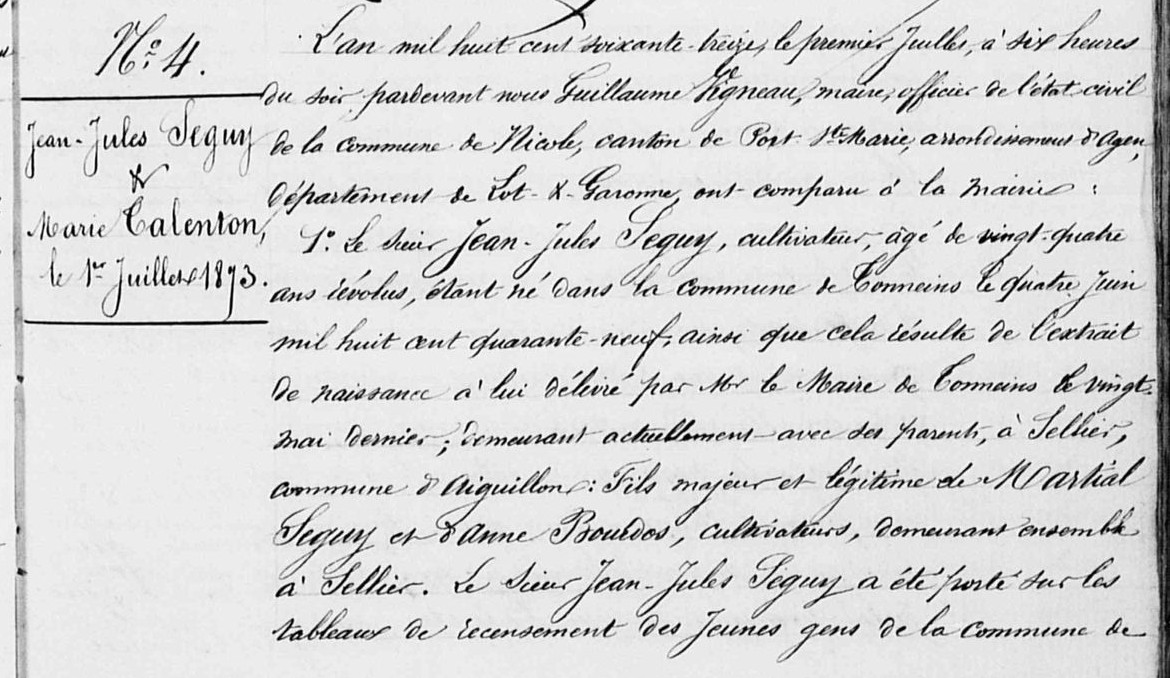 N.º 4.
Jean-Jules Seguy
&
Marie Talenton,
le 1er Juillet 1873.
L'an mil huit cent soixante-treize, le premier Juillet, à six heures
du soir pardevant nous Guillaume Vigneau, maire, officier de l'état civil
de la commune de Nicole, canton de Port Ste Marie, arrondissement d'Agen,
département de Lot-&-Garonne, ont comparu à la mairie :
1.º Le sieur Jean-Jules Seguy, cultivateur, âgé de vingt-quatre
ans révolus, étant né dans la commune de Tonneins le quatre Juin
mil huit cent quarante-neuf, ainsi que cela résulte de l'extrait
de naissance à lui délivré par Mr le Maire de Tonneins le vingt-
mai dernier ; demeurant actuellement avec ses parents, à Sellier,
commune d'Aiguillon : Fils majeur et légitime de Martial
Seguy et d'Anne Bourdos, cultivateurs, demeurant ensemble
à Sellier. Le Sieur Jean-Jules Séguy a été porté sur les
tableaux de recensement des Jeunes gens de la commune de